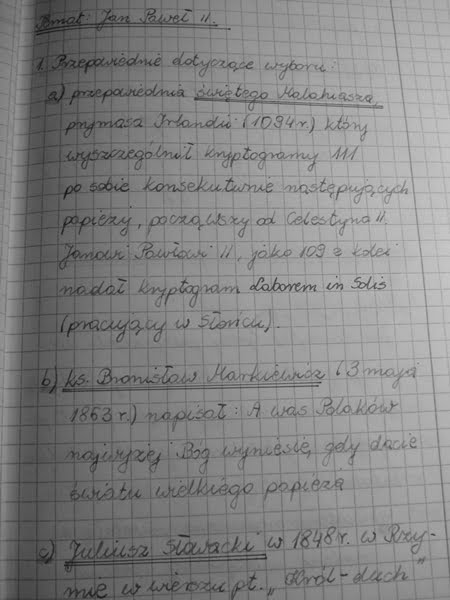 Temat: Jan Paweł II.
1. Przepowiednie dotyczące wyboru:
a) przepowiednia świętego Malahiasza,
prymasa Irlandii (1094r.) który
wyszczególnił kryptogramy 111
po sobie konsekutwnie następujących
papieży, począwszy od Celestyna II.
Janowi Pawłowi II, jako 109 z kolei
nadał kryptogram Laborem in Solis
(pracujący w Słońcu).
b) ks. Bronisław Markiewicz (3 maja
1863r.) napisał: A was Polaków
najwyżej Bóg wyniesie, gdy dacie
światu wielkiego papieża
c) Juliusz Słowacki w 1848r. w Rzy-
mie w wierszu pt. „Król-duch"